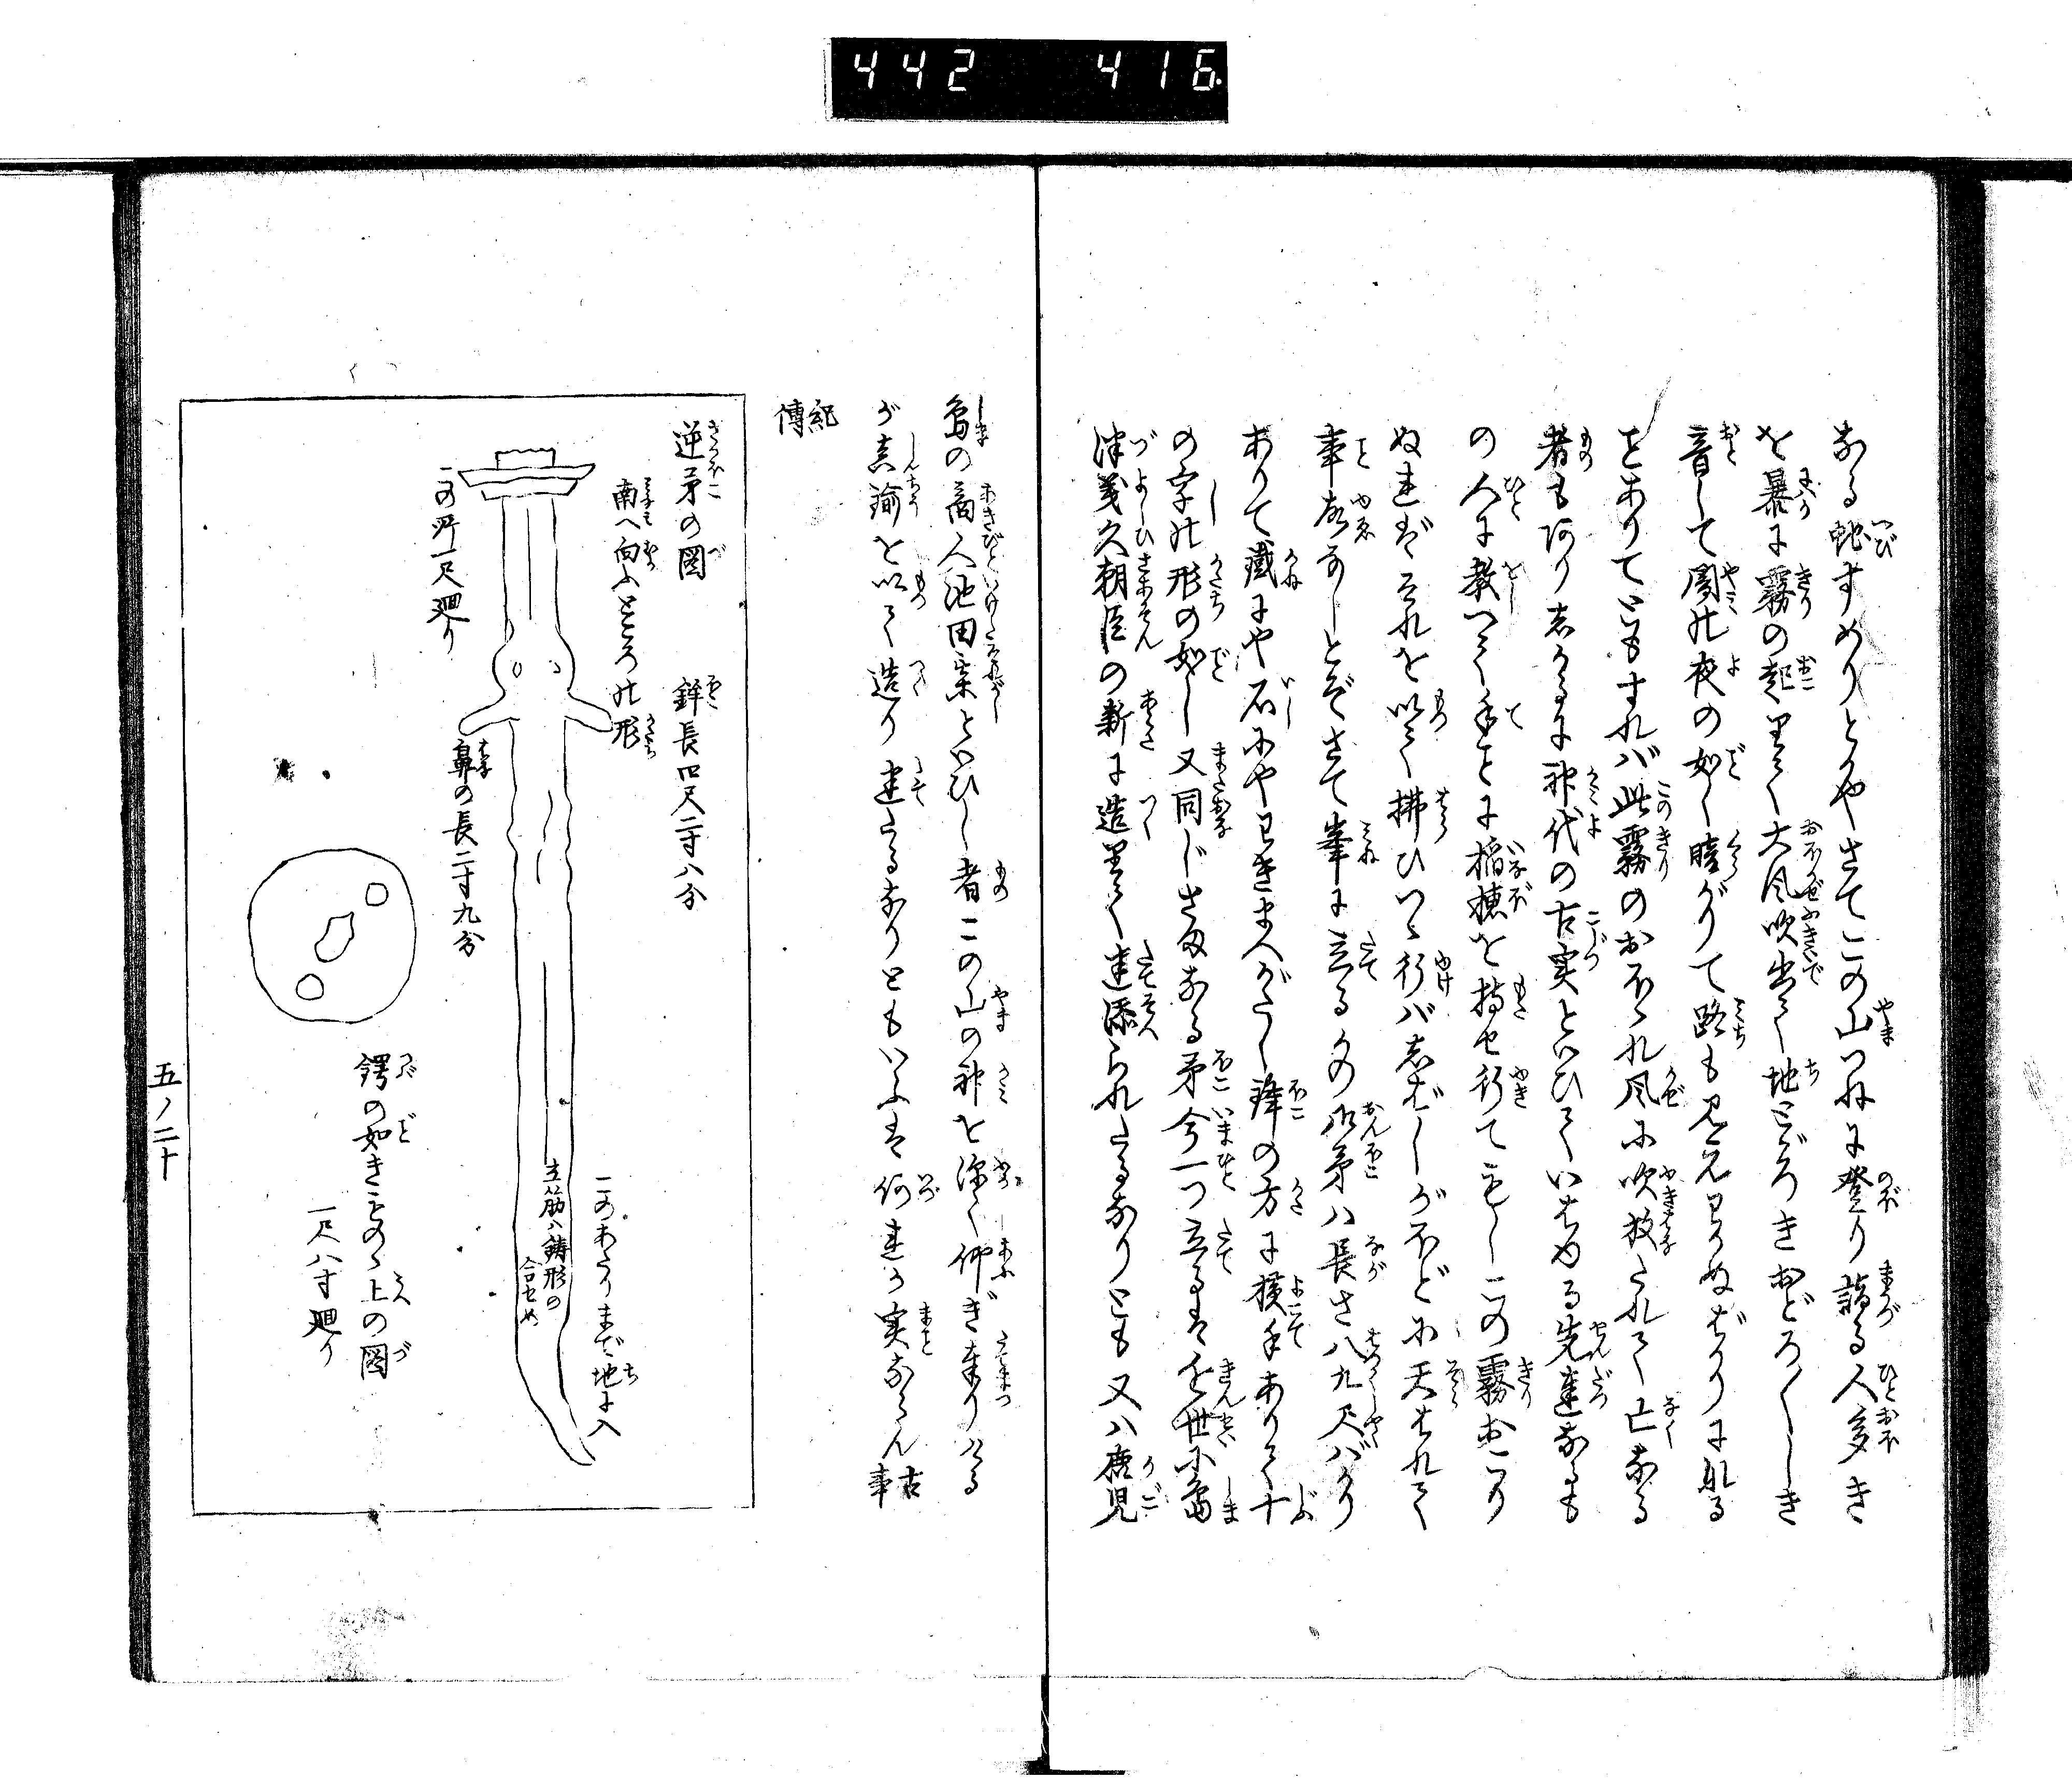 442 416
なる蛇すめりとかやさてこの山つねに登り詣る人多き
を暴に霧の起りて大風吹出て地とゞろきおどろ〳〵しき
音して闇の夜の如く暗がりて路も見えわかぬばかりになる
ことありてともすれバ此霧のおほハれ風に吹放たれて亡なる
者も阿りしかるに神代の古実といひていはゆる先達なるも
の人に教へて手ごとに稲穂を持せ行てもしこの霧おこり
ぬればそれを以て拂ひつゝ行バしばしがほどに天はれて
事故なしとぞさて峯に立るかの御矛ハ長さ八九尺バかり
ありて鐵にや石にやわきまへがたし鋒の方に横手ありて十
の字の形の如し又同じさまなる矛今一つ立るは近世に島
津義久朝臣の新に造りて建添られたるなりとも又ハ鹿児
島の商人池田某といひし者この山の神を深く仰ぎ奉りける
が真鍮を以て造り建たるなりともいふは何れか実ならん古事
記傳
逆矛の図 鉾長四尺二寸八分
南へ向ふところの形
この所一尺廻り
鼻の長二寸九分
このあたりまで地に入
立筋ハ鋳形の
合せめ
鍔の如きものゝ上の図
一尺八寸廻り
五ノ二十